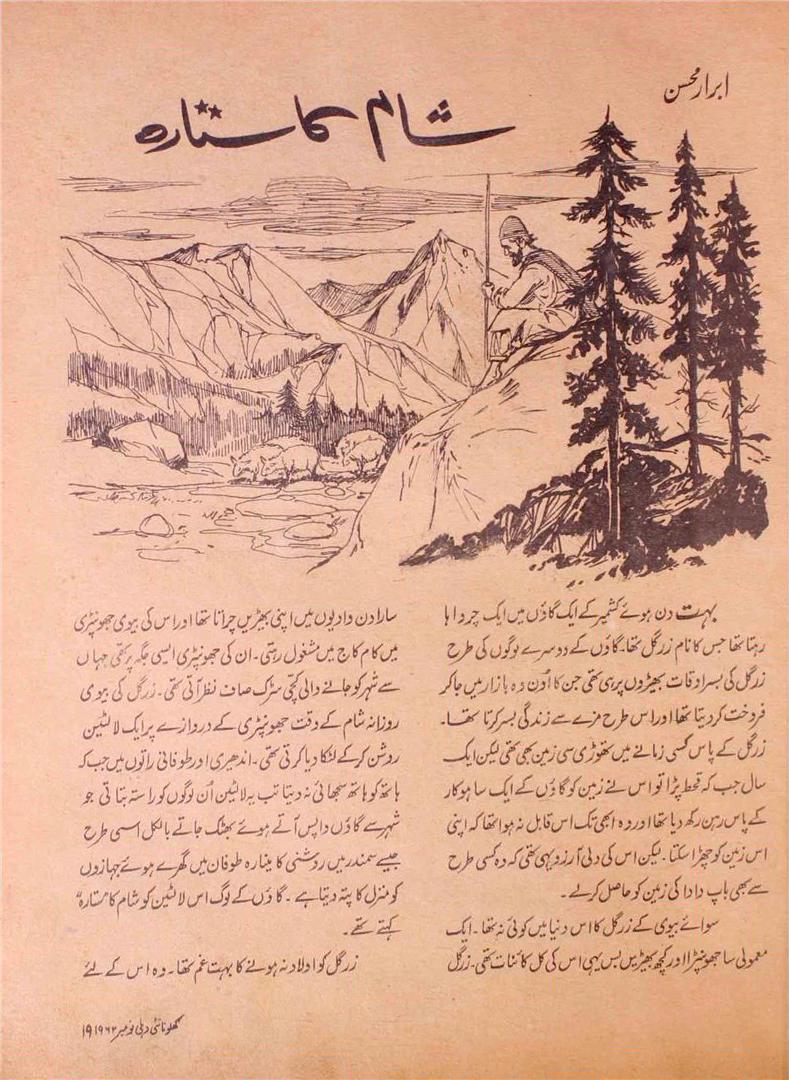 ابرار محسن
شام کا ستارہ
بہت دن ہوئے کشمیر کے ایک گاؤں میں ایک چرواہا
رہتا تھا جس کا نام زرگل تھا۔ گاؤں کے دوسرے لوگوں کی طرح
زرگل کی بسر اوقات بھیڑوں پر ہی تھی جن کا اُون وہ بازار میں جا کر
فروخت کر دیتا تھا اور اس طرح مزے سے زندگی بسر کرتا تھا۔
زرگل کے پاس کسی زمانے میں تھوڑی سی زمین بھی تھی لیکن ایک
سال جب کہ قحط پڑا تو اس نے زمین کو گاؤں کے ایک ساہوکار
کے پاس رہن رکھ دیا تھا اور وہ ابھی تک اس قابل نہ ہوا تھا کہ اپنی
اس زمین کو چھڑا سکتا۔ لیکن اس کی دلی آرزو یہی تھی کہ وہ کسی طرح
سے بھی باپ دادا کی زمین کو حاصل کر لے۔
سوائے بیوی کے زرگل کا اس دنیا میں کوئی نہ تھا۔ ایک
معمولی سا جھونپڑا اور کچھ بھیڑیں بس یہی اس کی کل کائنات تھی۔ زرگل
سارا دن وادیوں میں اپنی بھیڑیں چراتا تھا اور اس کی بیوی جھونپڑی
میں کام کاج میں مشغول رہتی۔ ان کی جھونپڑی ایسی جگہ پر تھی جہاں
سے شہر کو جانے والی کچی سڑک صاف نظر آتی تھی۔ زرگل کی بیوی
روزانہ شام کے وقت جھونپڑی کے دروازے پر ایک لالٹین
روشن کر کے لٹکا دیا کرتی تھی۔ اندھیری اور طوفانی راتوں میں جب کہ
ہاتھ کو ہاتھ سجھائی نہ دیتا تب یہ لالٹین اُن لوگوں کو راستہ بتاتی جو
شہر سے گاؤں واپس آتے ہوئے بھٹک جاتے بالکل اسی طرح
جیسے سمندر میں روشنی کا مینارہ طوفان میں گھرے ہوئے جہازوں
کو منزل کا پتہ دیتا ہے۔ گاؤں کے لوگ اس لالٹین کو شام کا "ستارہ"
کہتے تھے۔
زرگل کو اولاد نہ ہونے کا بہت غم تھا۔ وہ اس کے لئے
کھلونا نئی دہلی نومبر ۱۹۶۲ ۱۹